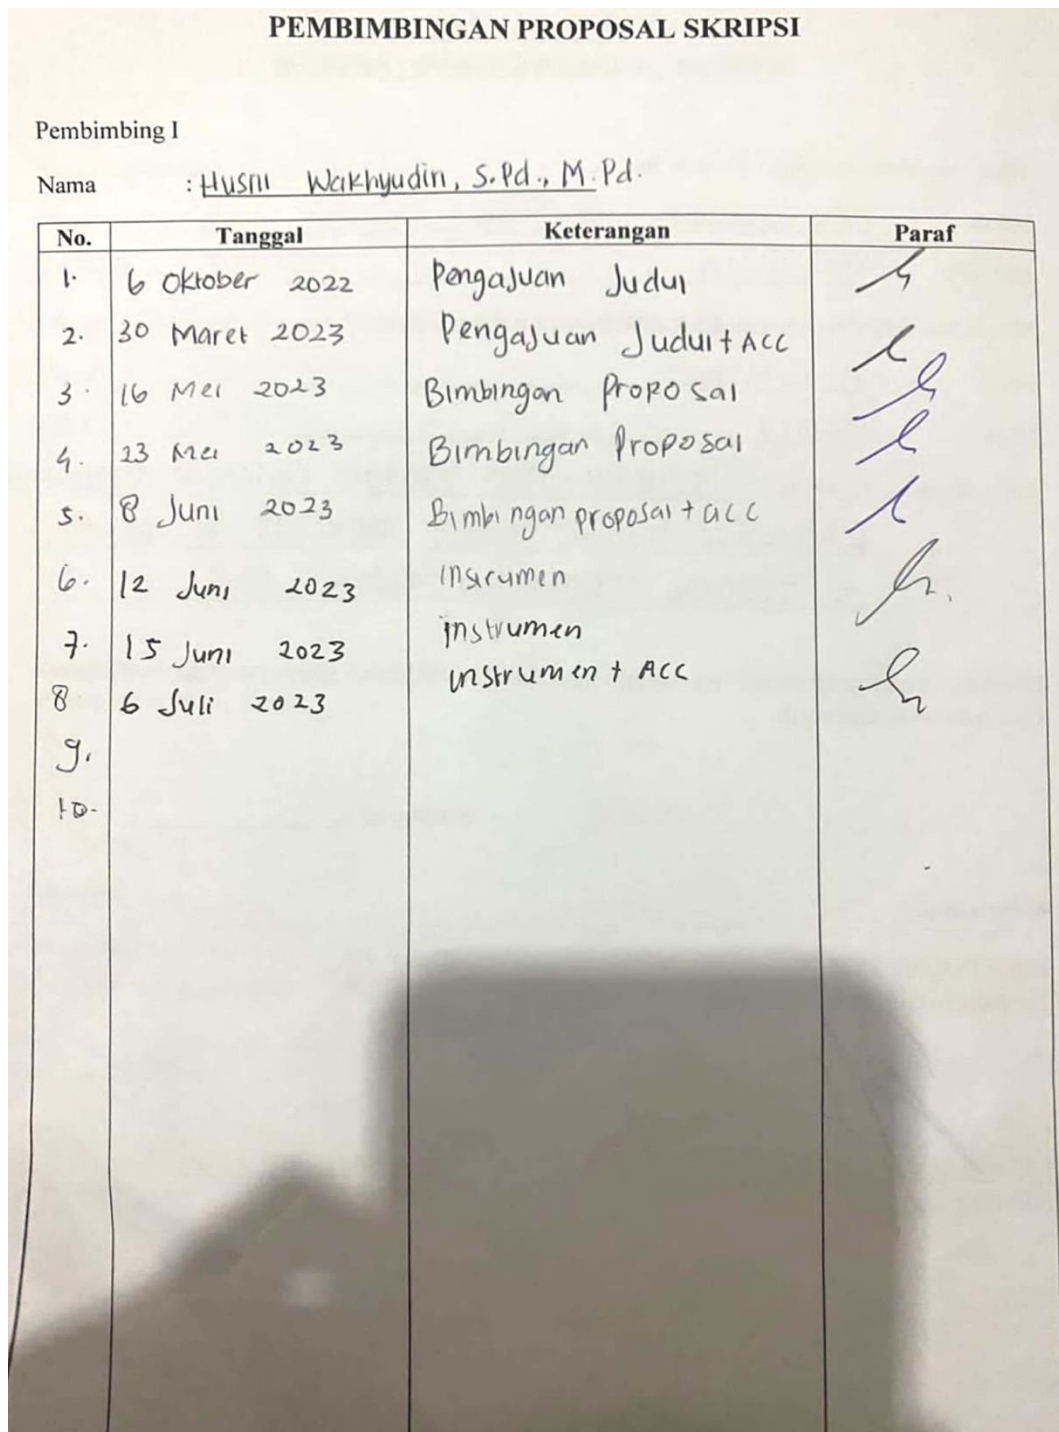 PEMBIMBINGAN PROPOSAL SKRIPSI
Pembimbing I
Nama : Husni Wakhyudin, S.Pd., M.Pd.
No. Tanggal Keterangan Paraf
1. 6 Oktober 2022 Pengajuan Judul
2. 30 Maret 2023 Pengajuan Judul + ACC
3. 16 Mei 2023 Bimbingan Proposal
4. 23 Mei 2023 Bimbingan Proposal
5. 8 Juni 2023 Bimbingan proposal + acc
6. 12 Juni 2023 instrumen
7. 15 Juni 2023 instrumen
8 6 Juli 2023 instrumen + ACC
9.
10.